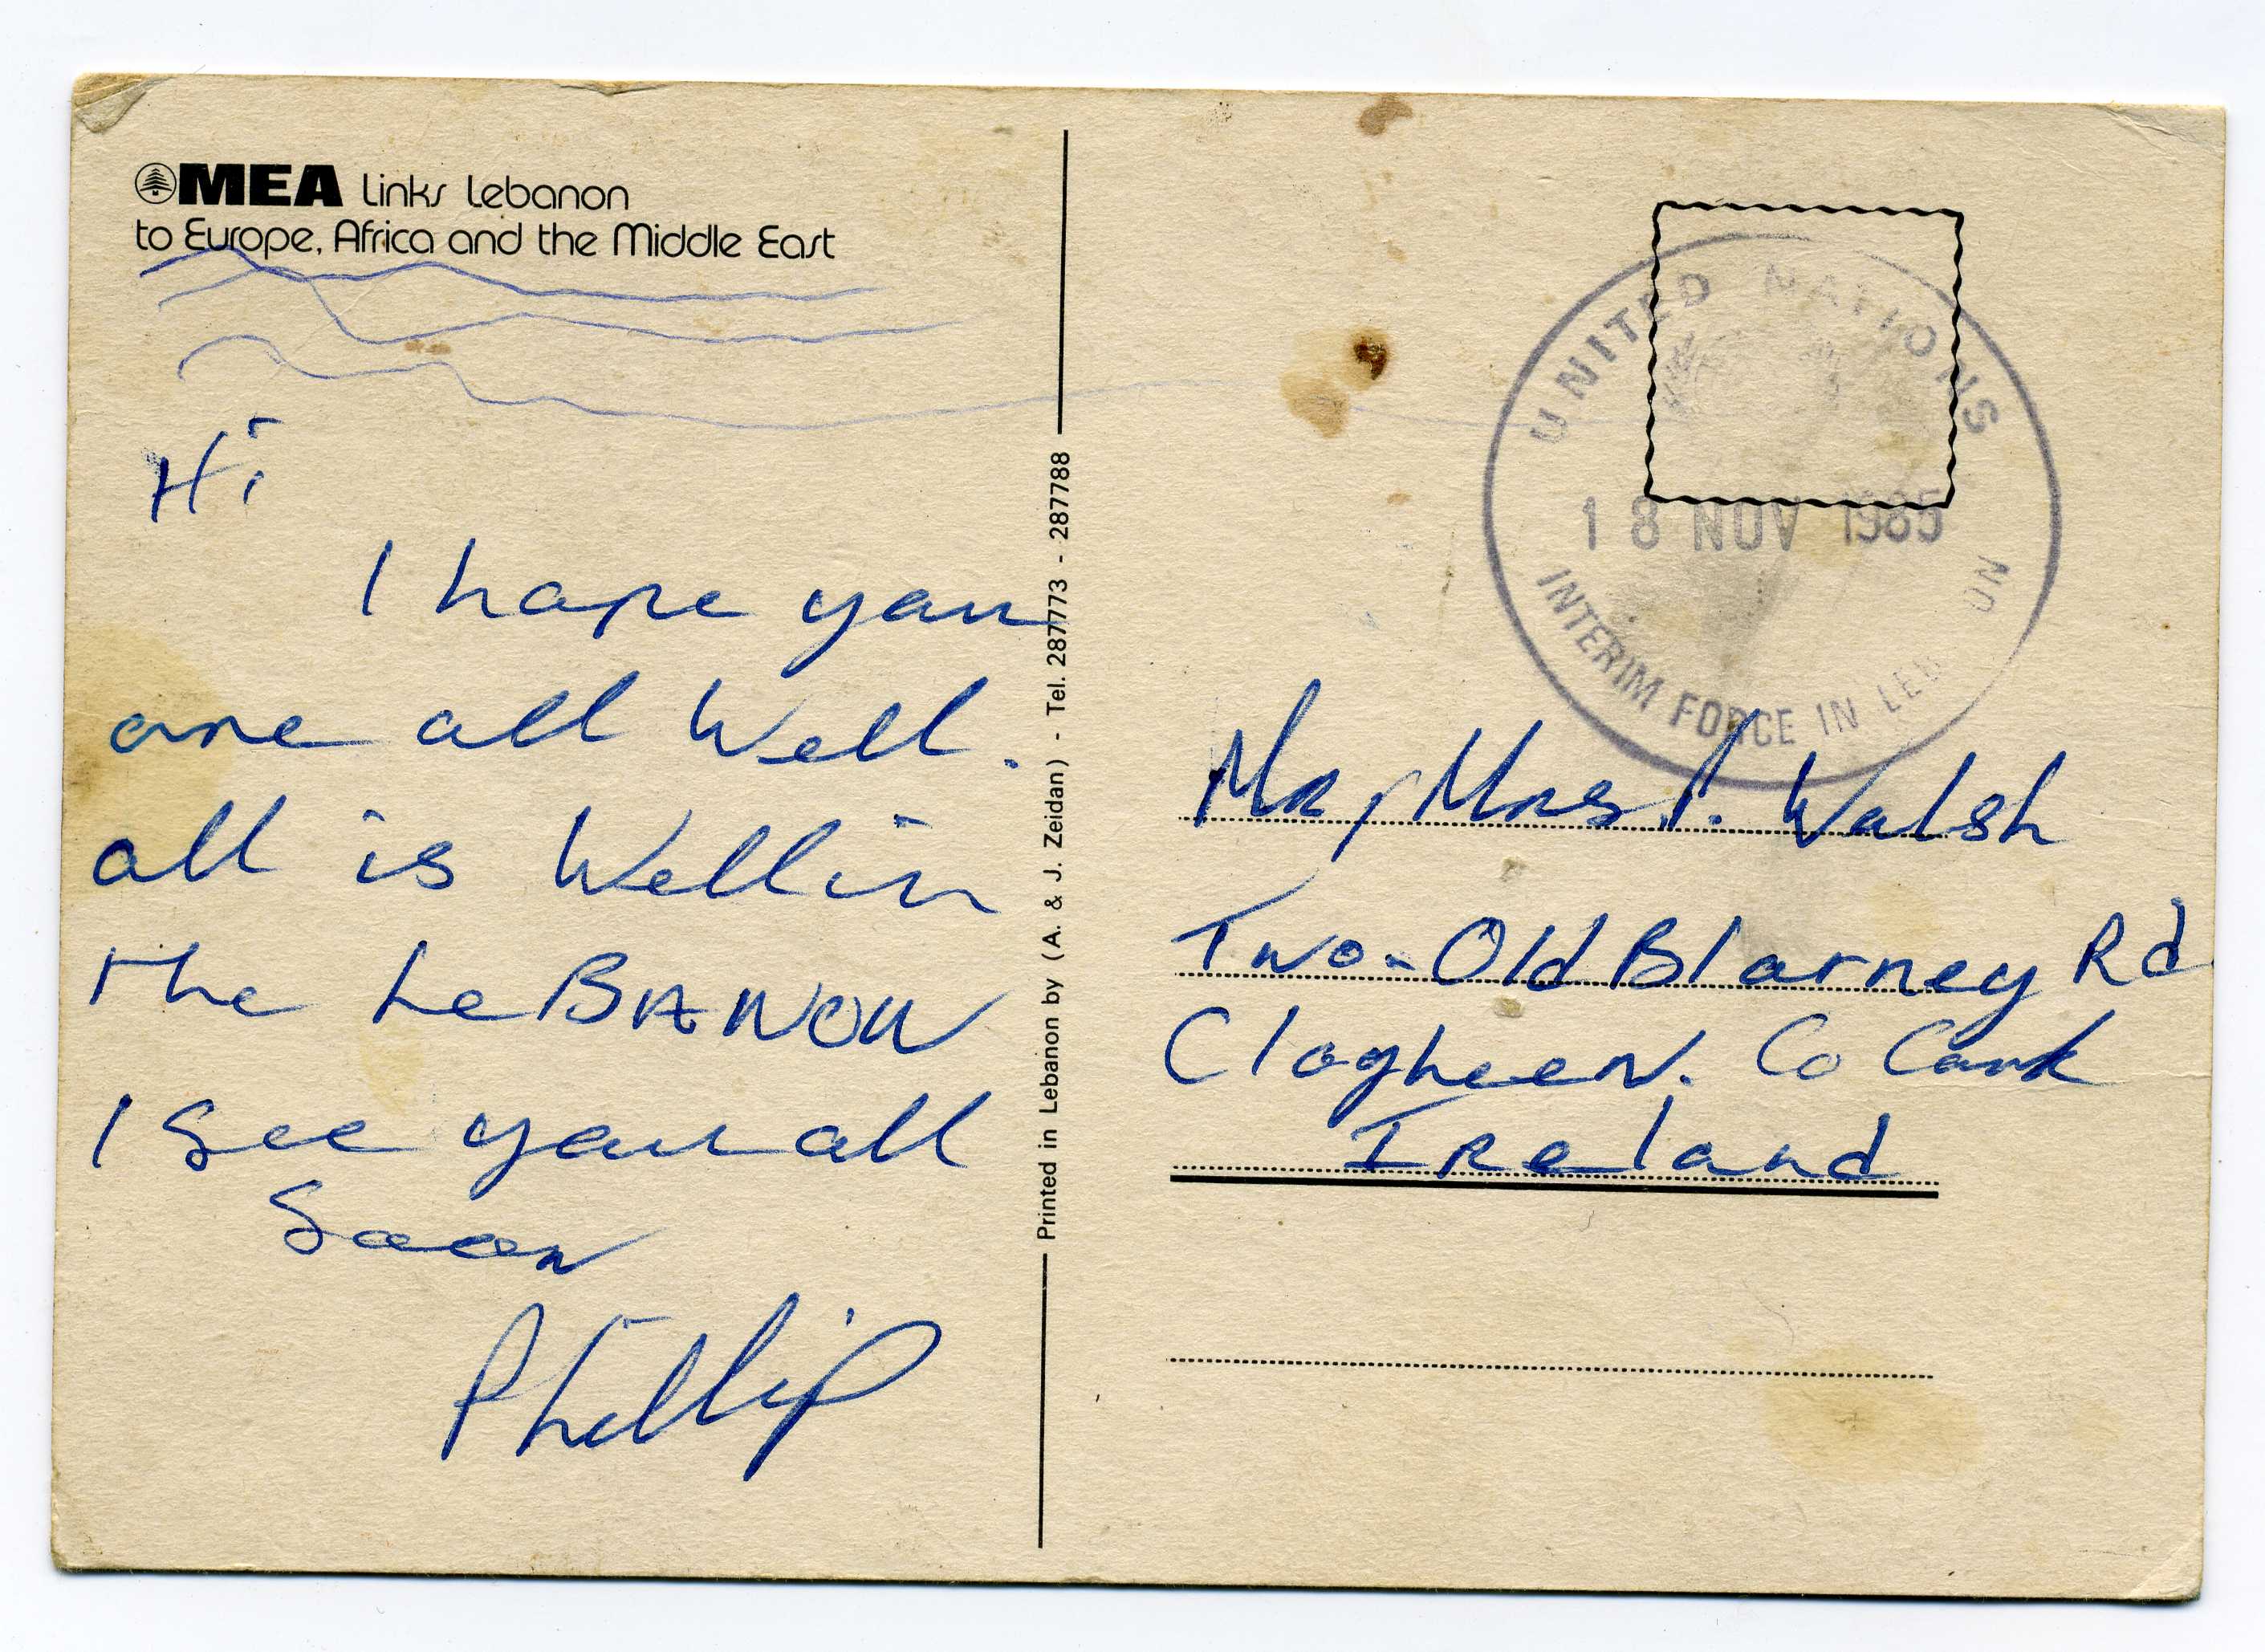 MEA Links Lebanon
to Europe, Africa and the Middle East
Hi
I hope you
are all well.
all is well in
the LeBANON
I see you all
Soon
Phillip
Printed in Lebanon by (A. & J. Zeidan) - Tel. 287773 - 287788
UNITED NATIONS
18 NOV 1985
INTERIM FORCE IN LEBANON
Mr, Mrs P. Walsh
Two-Old Blarney Rd
Clogheen. Co Cork
Ireland